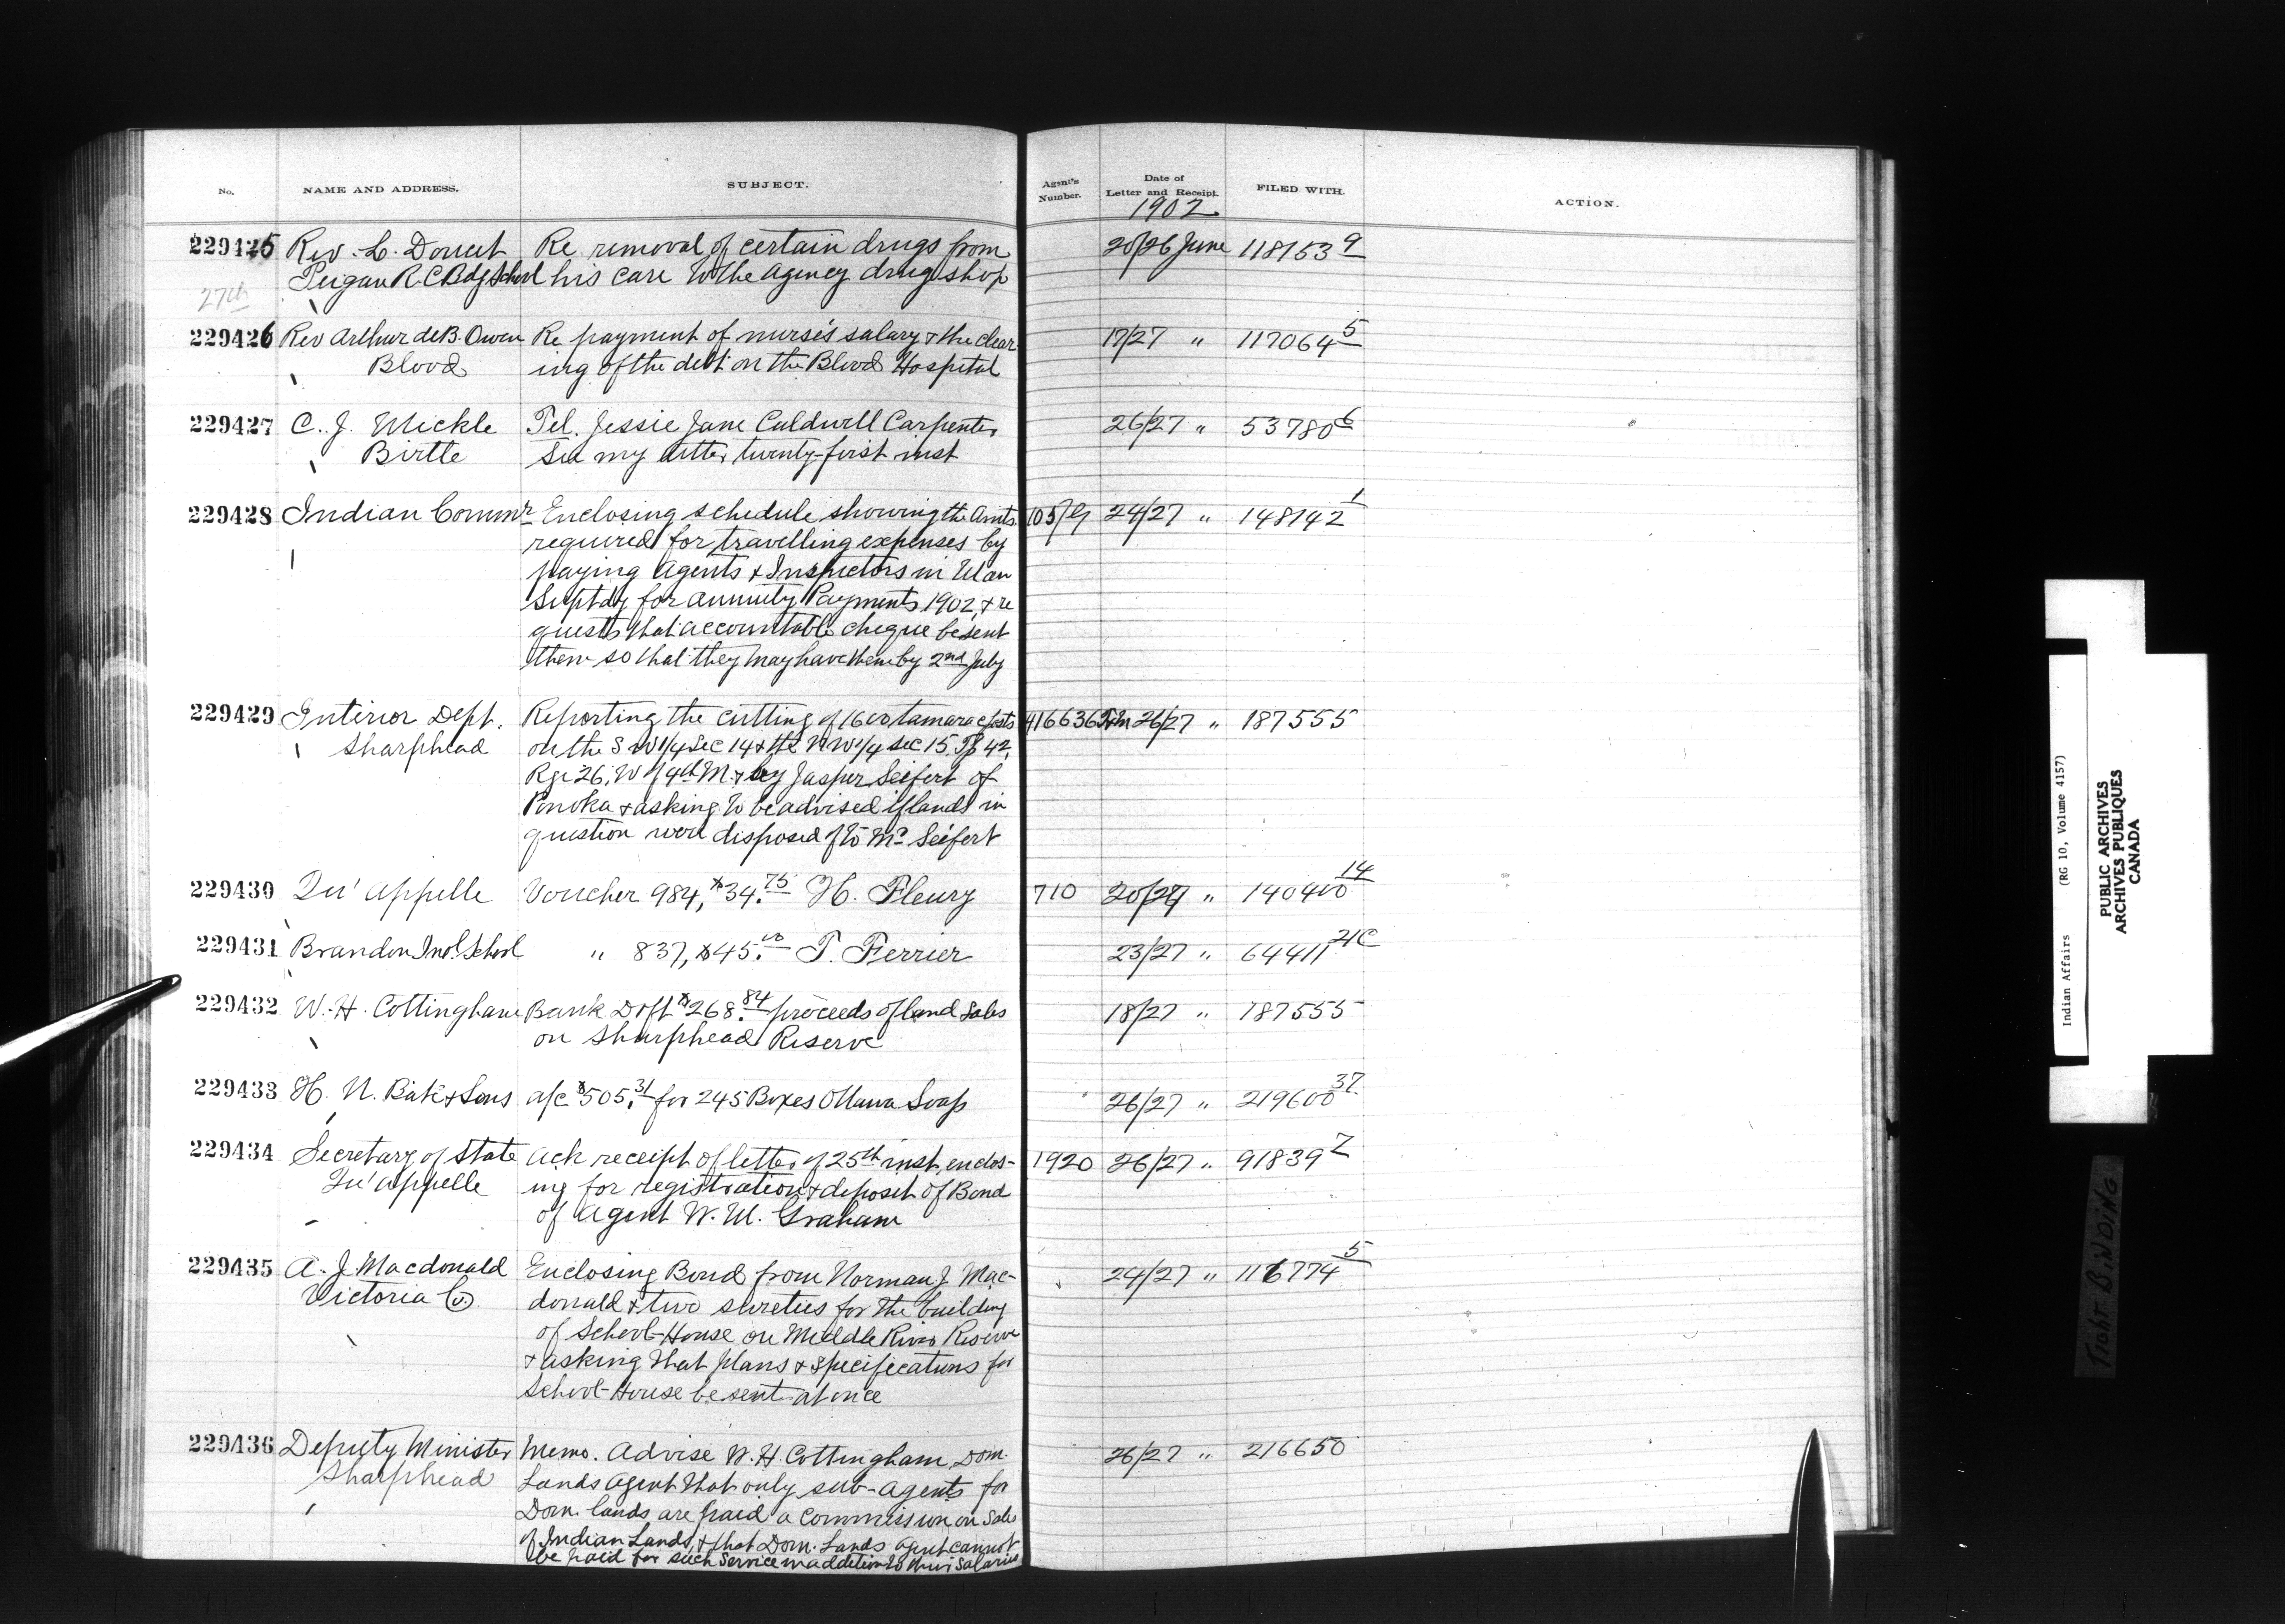 No. NAME AND ADDRESS. SUBJECT. Agent's Number. Date of Letter and Receipt. FILED WITH. ACTION.
1902
229425 Rev. L. Doucet Re removal of certain drugs from 20/26 June 118153 9
Peigan R.C. Bdg School his care to the Agency drug shop
27th
229426 Rev Arthur deB. Owen Re payment of nurse's salary & the clear 17/27 " 117064 5
Blood ing of the debt on the Blood Hospital
229427 C. J. Mickle Tel. Jessie Jane Caldwell Carpenter 26/27 " 53780 6
Birtle See my letter twenty-first inst
229428 Indian Commr Enclosing schedule showing the Amts 105/G 24/27 " 148142 1
required for travelling expenses by
paying Agents & Inspectors in Man
Suptdy for annuity Payments 1902, & re
quests that accountable cheque be sent
them so that they may have them by 2nd July
229429 Interior Dept. Reporting the cutting of 1600 tamarac posts 416636 Tim 26/27 " 187555
Sharphead on the S W 1/4 Sec 14 & the N W 1/4 Sec 15. Tp 42,
Rge 26, W of 4th M. by Jasper Seifert of
Ponoka & asking to be advised if lands in
question were disposed of to Mr Seifert
229430 Qu'appelle Voucher 984, $34.75 H. Fleury 710 20/27 " 140400 14
229431 Brandon Indl. School " 837, $45.00 T. Ferrier 23/27 " 64411 21C
229432 W. H. Cottingham Bank Dft $268.84 proceeds of land Sales 18/27 " 187555
on Sharphead Reserve
229433 H. N. Bate & Sons a/c $505.31 for 245 Boxes Ottawa Soap 26/27 " 219600 37
229434 Secretary of State Ack receipt of letter of 25th inst, enclos- 1920 26/27 " 91839 7
Qu'appelle ing for registration & deposit of Bond
of Agent W. M. Graham
229435 A. J. Macdonald Enclosing Bond from Norman J. Mac- 24/27 " 116774 5
Victoria Co. donald & two sureties for the building
of School-House on Middle River Reserve
& asking that plans & specifications for
School-House be sent at once
229436 Deputy Minister Memo. Advise W. H. Cottingham, Dom. 26/27 " 216650
Sharphead Lands Agent that only sub-agents for
Dom. lands are paid a commission on Sales
of Indian Lands, & that Dom. Lands agent cannot
be paid for such Service in addition to their Salaries
Indian Affairs (RG 10, Volume 4157)
PUBLIC ARCHIVES
ARCHIVES PUBLIQUES
CANADA
TIGHT BINDING